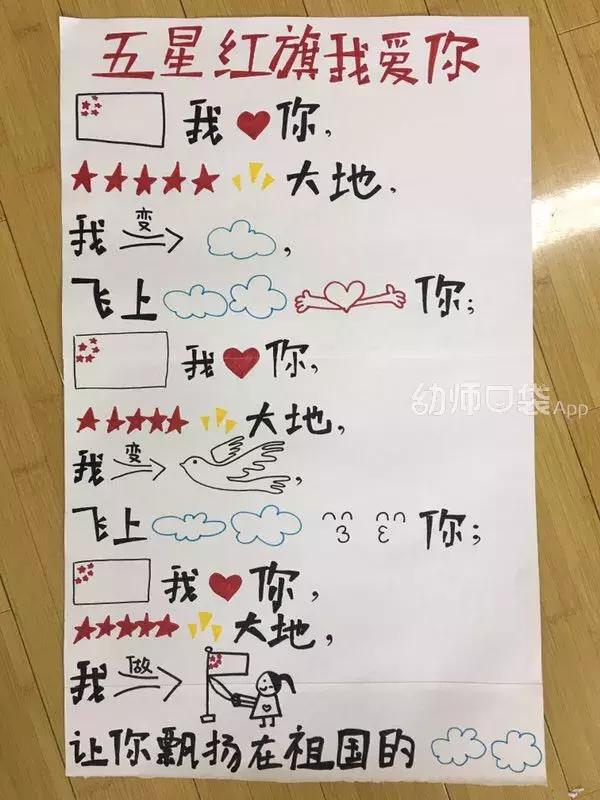 五星红旗我爱你
我你,
大地,
我变,
飞上你;
我你,
大地,
我变,
飞上你;
我你,
大地,
我做
让你飘扬在祖国的
幼师口袋App